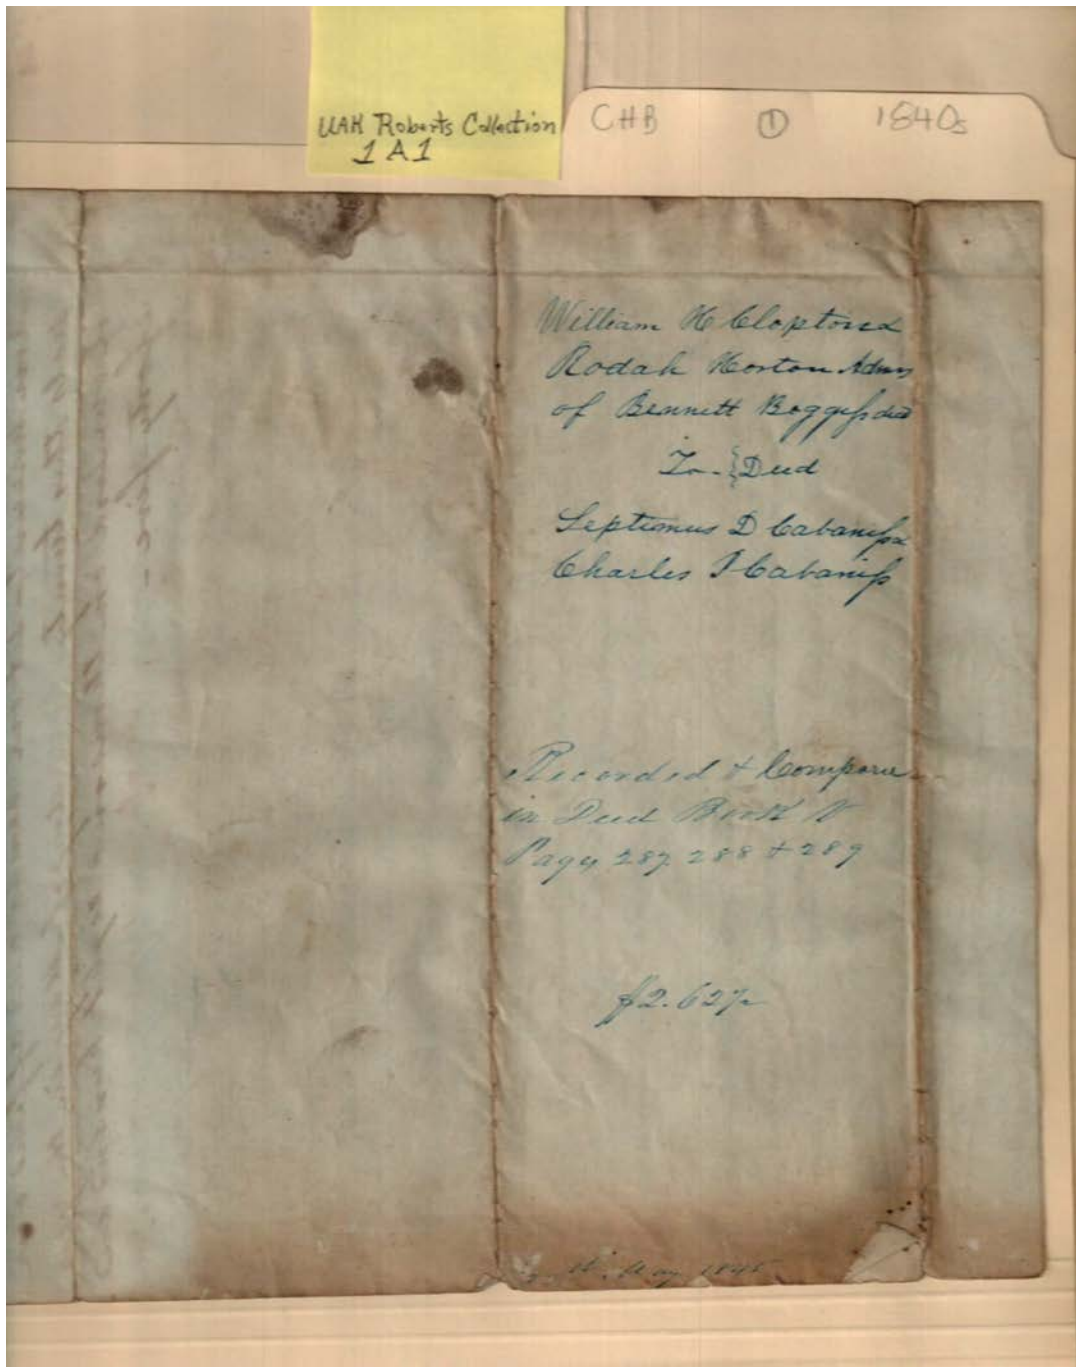 UAH Roberts Collection
1A1
CHB ① 1840s
William H Clopton &
Rodah Horton Admrs
of Bennett Boggess decd
To } Deed
Septimus D Cabaniss &
Charles J Cabaniss
Recorded & Compared
in Deed Book V
Pages 287. 288 & 289
$2.62½
May 1845